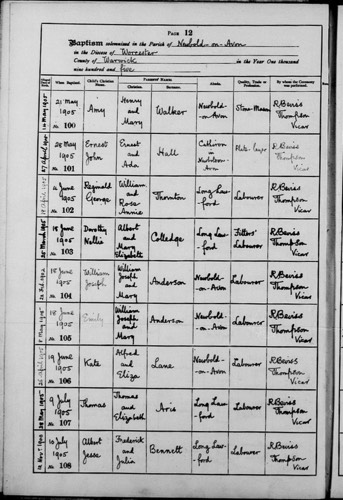 PAGE 12
Baptism solemnized in the Parish of Newbold-on-Avon
in the Diocese of Worcester
County of Warwick in the Year One thousand
nine hundred and five
When Baptized. Child's Christian Name. PARENTS' NAMES. Abode. Quality, Trade or Profession. By whom the Ceremony was performed.
Christian. Surname.
21 May 1905 No. 100 Amy Henry and Mary Walker Newbold-on-Avon Stone Mason R Beviss Thompson Vicar
28 May 1905 No. 101 Ernest John Ernest and Ada Hall in Newbold-on-Avon Plate layer R Beviss Thompson Vicar
4 June 1905 No. 102 Reginald George William and Rose Annie Thornton Long Lawford Labourer R Beviss Thompson Vicar
18 June 1905 No. 103 Dorothy Nellie Albert and Mary Elizabeth Colledge Long Lawford Fitters' Labourer R Beviss Thompson Vicar
18 June 1905 No. 104 William Joseph William Joseph and Mary Anderson Newbold-on-Avon Labourer R Beviss Thompson Vicar
18 June 1905 No. 105 Emily William Joseph and Mary Anderson Newbold-on-Avon Labourer R Beviss Thompson Vicar
19 June 1905 No. 106 Kate Alfred and Eliza Lane Newbold-on-Avon Labourer R Beviss Thompson Vicar
9 July 1905 No. 107 Thomas Thomas and Elizabeth Aris Long Lawford Labourer R Beviss Thompson Vicar
10 July 1905 No. 108 Albert Jesse Frederick and Julia Bennett Long Lawford Labourer R Beviss Thompson Vicar